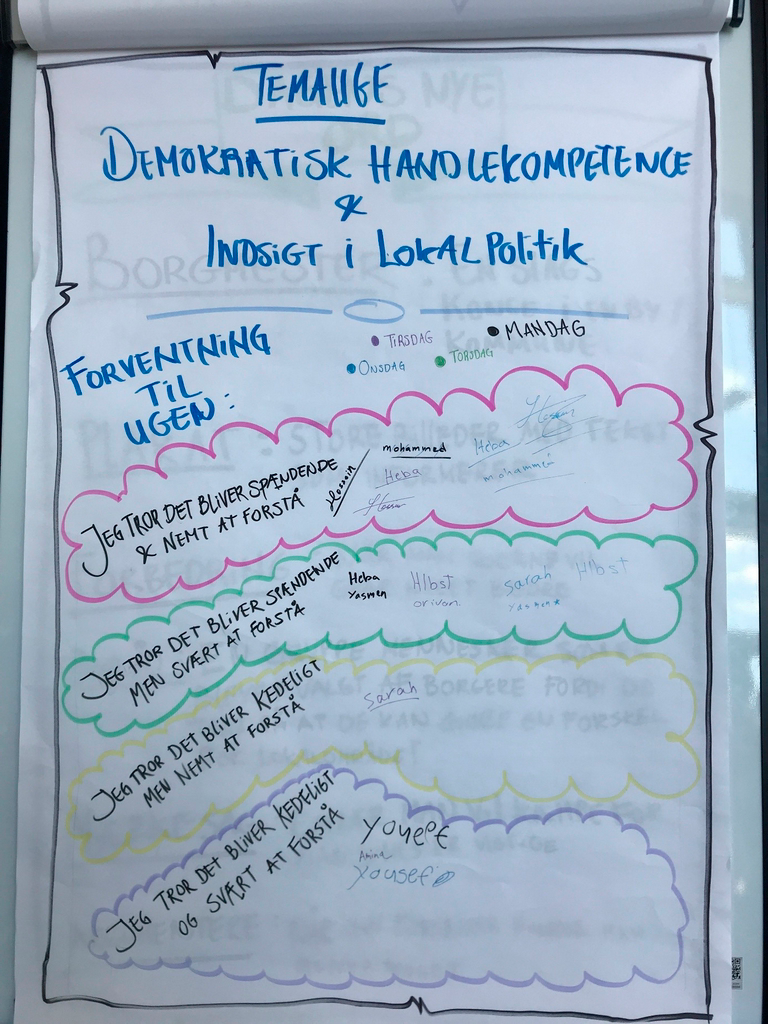 TEMAUGE
DEMOKRATISK HANDLEKOMPETENCE
&
INDSIGT I LOKALPOLITIK
FORVENTNING
TIL
UGEN:
TIRSDAG
MANDAG
ONSDAG
TORSDAG
JEG TROR DET BLIVER SPÆNDENDE
& NEMT AT FORSTÅ
Hossein
mohammed
Heba
Heba
mohammed
JEG TROR DET BLIVER SPÆNDENDE
MEN SVÆRT AT FORSTÅ
Heba
Yasmen
HIbst
sarah
HIbst
JEG TROR DET BLIVER KEDELIGT
MEN NEMT AT FORSTÅ
sarah
JEG TROR DET BLIVER KEDELIGT
OG SVÆRT AT FORSTÅ
Youeef
Amina
Yousef